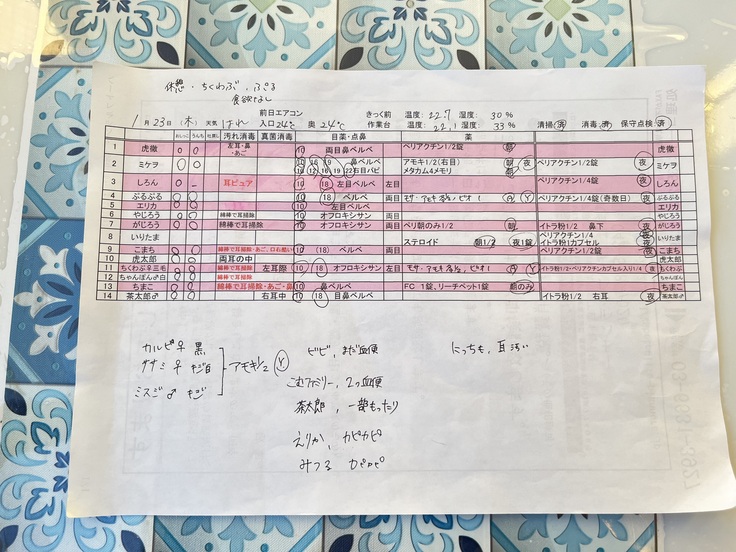 休憩・ちくわぶ、ぷる
食欲なし
1月23日(木) 天気 はれ 前日エアコン 入口24℃ 奥24℃ きっく前 温度: 22.7 湿度: 30% 作業台 温度: 22.1 湿度: 33% 清掃(済) 消毒(済) 保守点検(済)
おしっこ うんち 汚れ消毒 真菌消毒 目薬・点鼻 薬
1 虎徹 左耳・鼻・あご 10 両目鼻ベルベ ペリアクチン1/2錠 朝 虎徹
2 ミケヲ 10 16 19 鼻ベルベ アモキ1/2(右目) 朝 夜 ペリアクチン1/2錠 夜 ミケヲ
10 12 16 19 22 右目パピ メタカム4メモリ 朝
3 しろん 耳ピュア 10 18 左目ベルベ 左目 ペリアクチン1/4錠 夜 しろん
4 ぷるぷる 10 18 ベルベ 両目 ペリアクチン1/4錠(奇数日) 夜 ぷるぷる
5 エリカ 10 左目ベルベ エリカ
6 やじろう 綿棒で耳掃除 10 オフロキシサン 両目 やじろう
7 がじろう 綿棒で耳掃除 10 オフロキシサン 両目 ペリ朝のみ1/2 朝 イトラ粉1/2 鼻下 夜 がじろう
8 いりたま ステロイド 朝1/2 夜1錠 ペリアクチン1/4 イトラ粉1/2カプセル 夜 いりたま
9 こまち 綿棒で耳掃除・あご、口右拭い 10 18 ベルベ 両目 ペリアクチン1/2錠 こまち
10 虎太郎 両耳の中 虎太郎
11 ちくわぶ♀三毛 綿棒で耳掃除 左耳際 10 18 オフロキシサン 左目 イトラ粉1/2+ペリアクチンカプセル入り1/4 夜 ちくわぶ
12 ちゃんぽん♂白 綿棒で耳掃除 ちゃんぽん
13 ちまこ 綿棒で耳掃除・あご・鼻 10 鼻ベルベ FC 1錠、リーチペット1錠 朝のみ ちまこ
14 茶太郎♂ 右耳中 10 18 目鼻ベルベ イトラ粉1/2 右耳 夜 茶太郎♂
カルピ♀黒
ササミ♀キジ白
ミスジ♂キジ
アモキ1/2 Y
ビビ、まだ血便
こむファミリー、2つ血便
茶太郎、一部もったり
えりか、カピカピ
みつる カピカピ
にっちも、耳汚い